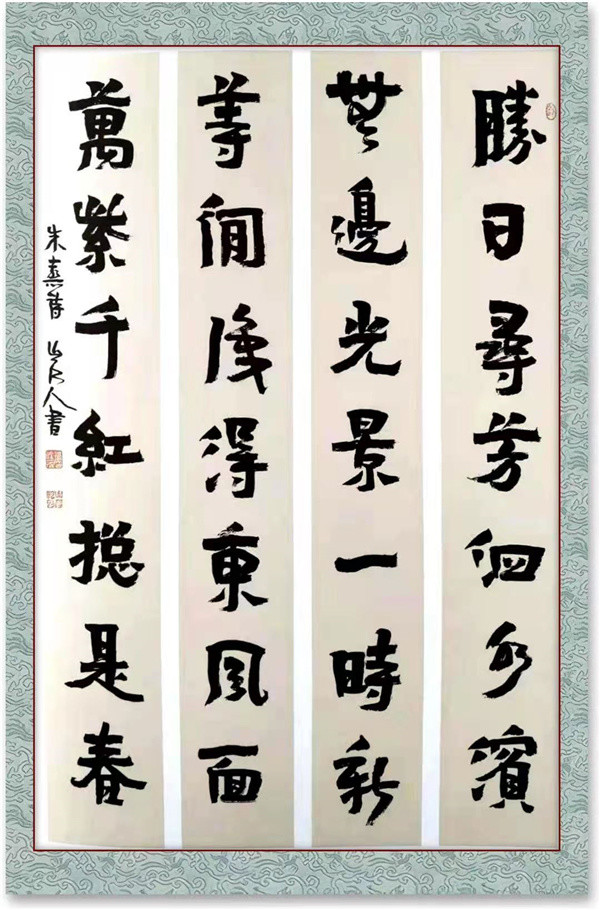 勝日尋芳泗水濱
無邊光景一時新
等閒識得東風面
萬紫千紅揔是春
朱熹詩 人書